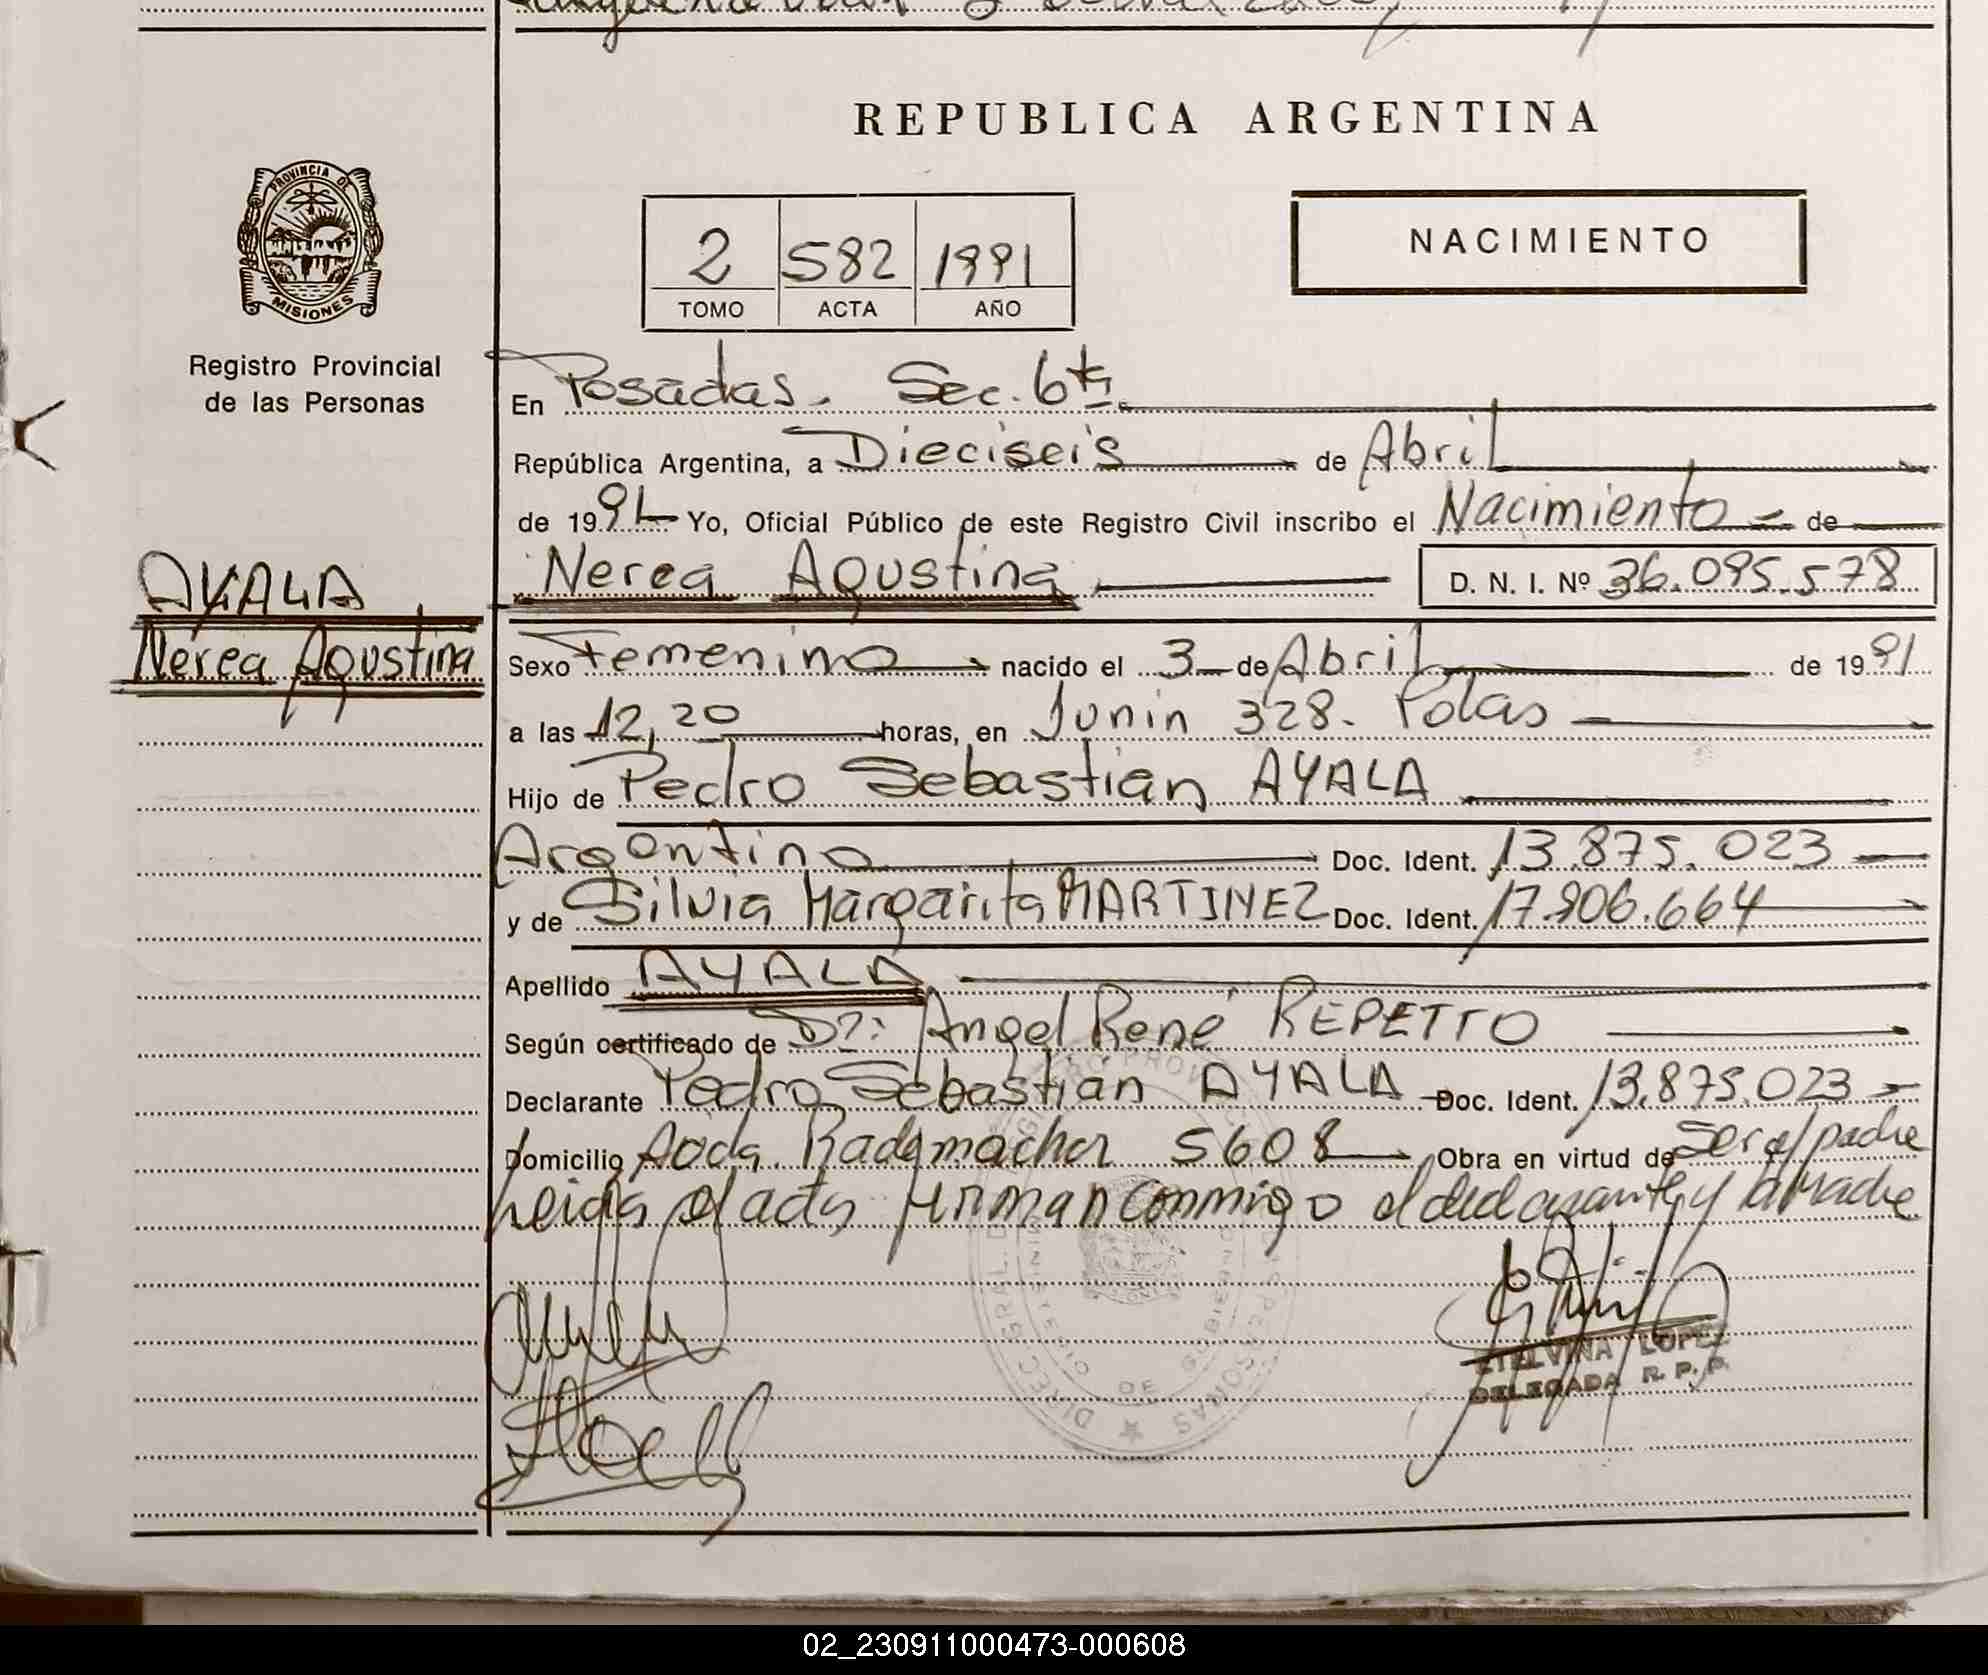 REPUBLICA ARGENTINA
PROVINCIA DE
MISIONES
Registro Provincial
de las Personas
2 582 1991
TOMO ACTA AÑO
NACIMIENTO
En Posadas. Sec. 6ta
República Argentina, a Dieciseis de Abril
de 1991 Yo, Oficial Público de este Registro Civil inscribo el Nacimiento de
Nerea Agustina D. N. I. Nº 36.095.578
AYALA
Nerea Agustina
Sexo Femenino nacido el 3 de Abril de 1991
a las 12,20 horas, en Junin 328. Pdas
Hijo de Pedro Sebastian AYALA
Argentino Doc. Ident. 13.875.023
y de Silvia Margarita MARTINEZ Doc. Ident. 17.906.664
Apellido AYALA
Según certificado de Dr: Angel René REPETTO
Declarante Pedro Sebastian AYALA Doc. Ident. 13.875.023
Domicilio Avda. Rademacher 5608 Obra en virtud de ser el padre
Leida el acta firman conmigo el declarante y la madre
ETELVINA LOPEZ
DELEGADA R. P. P.
02_230911000473-000608